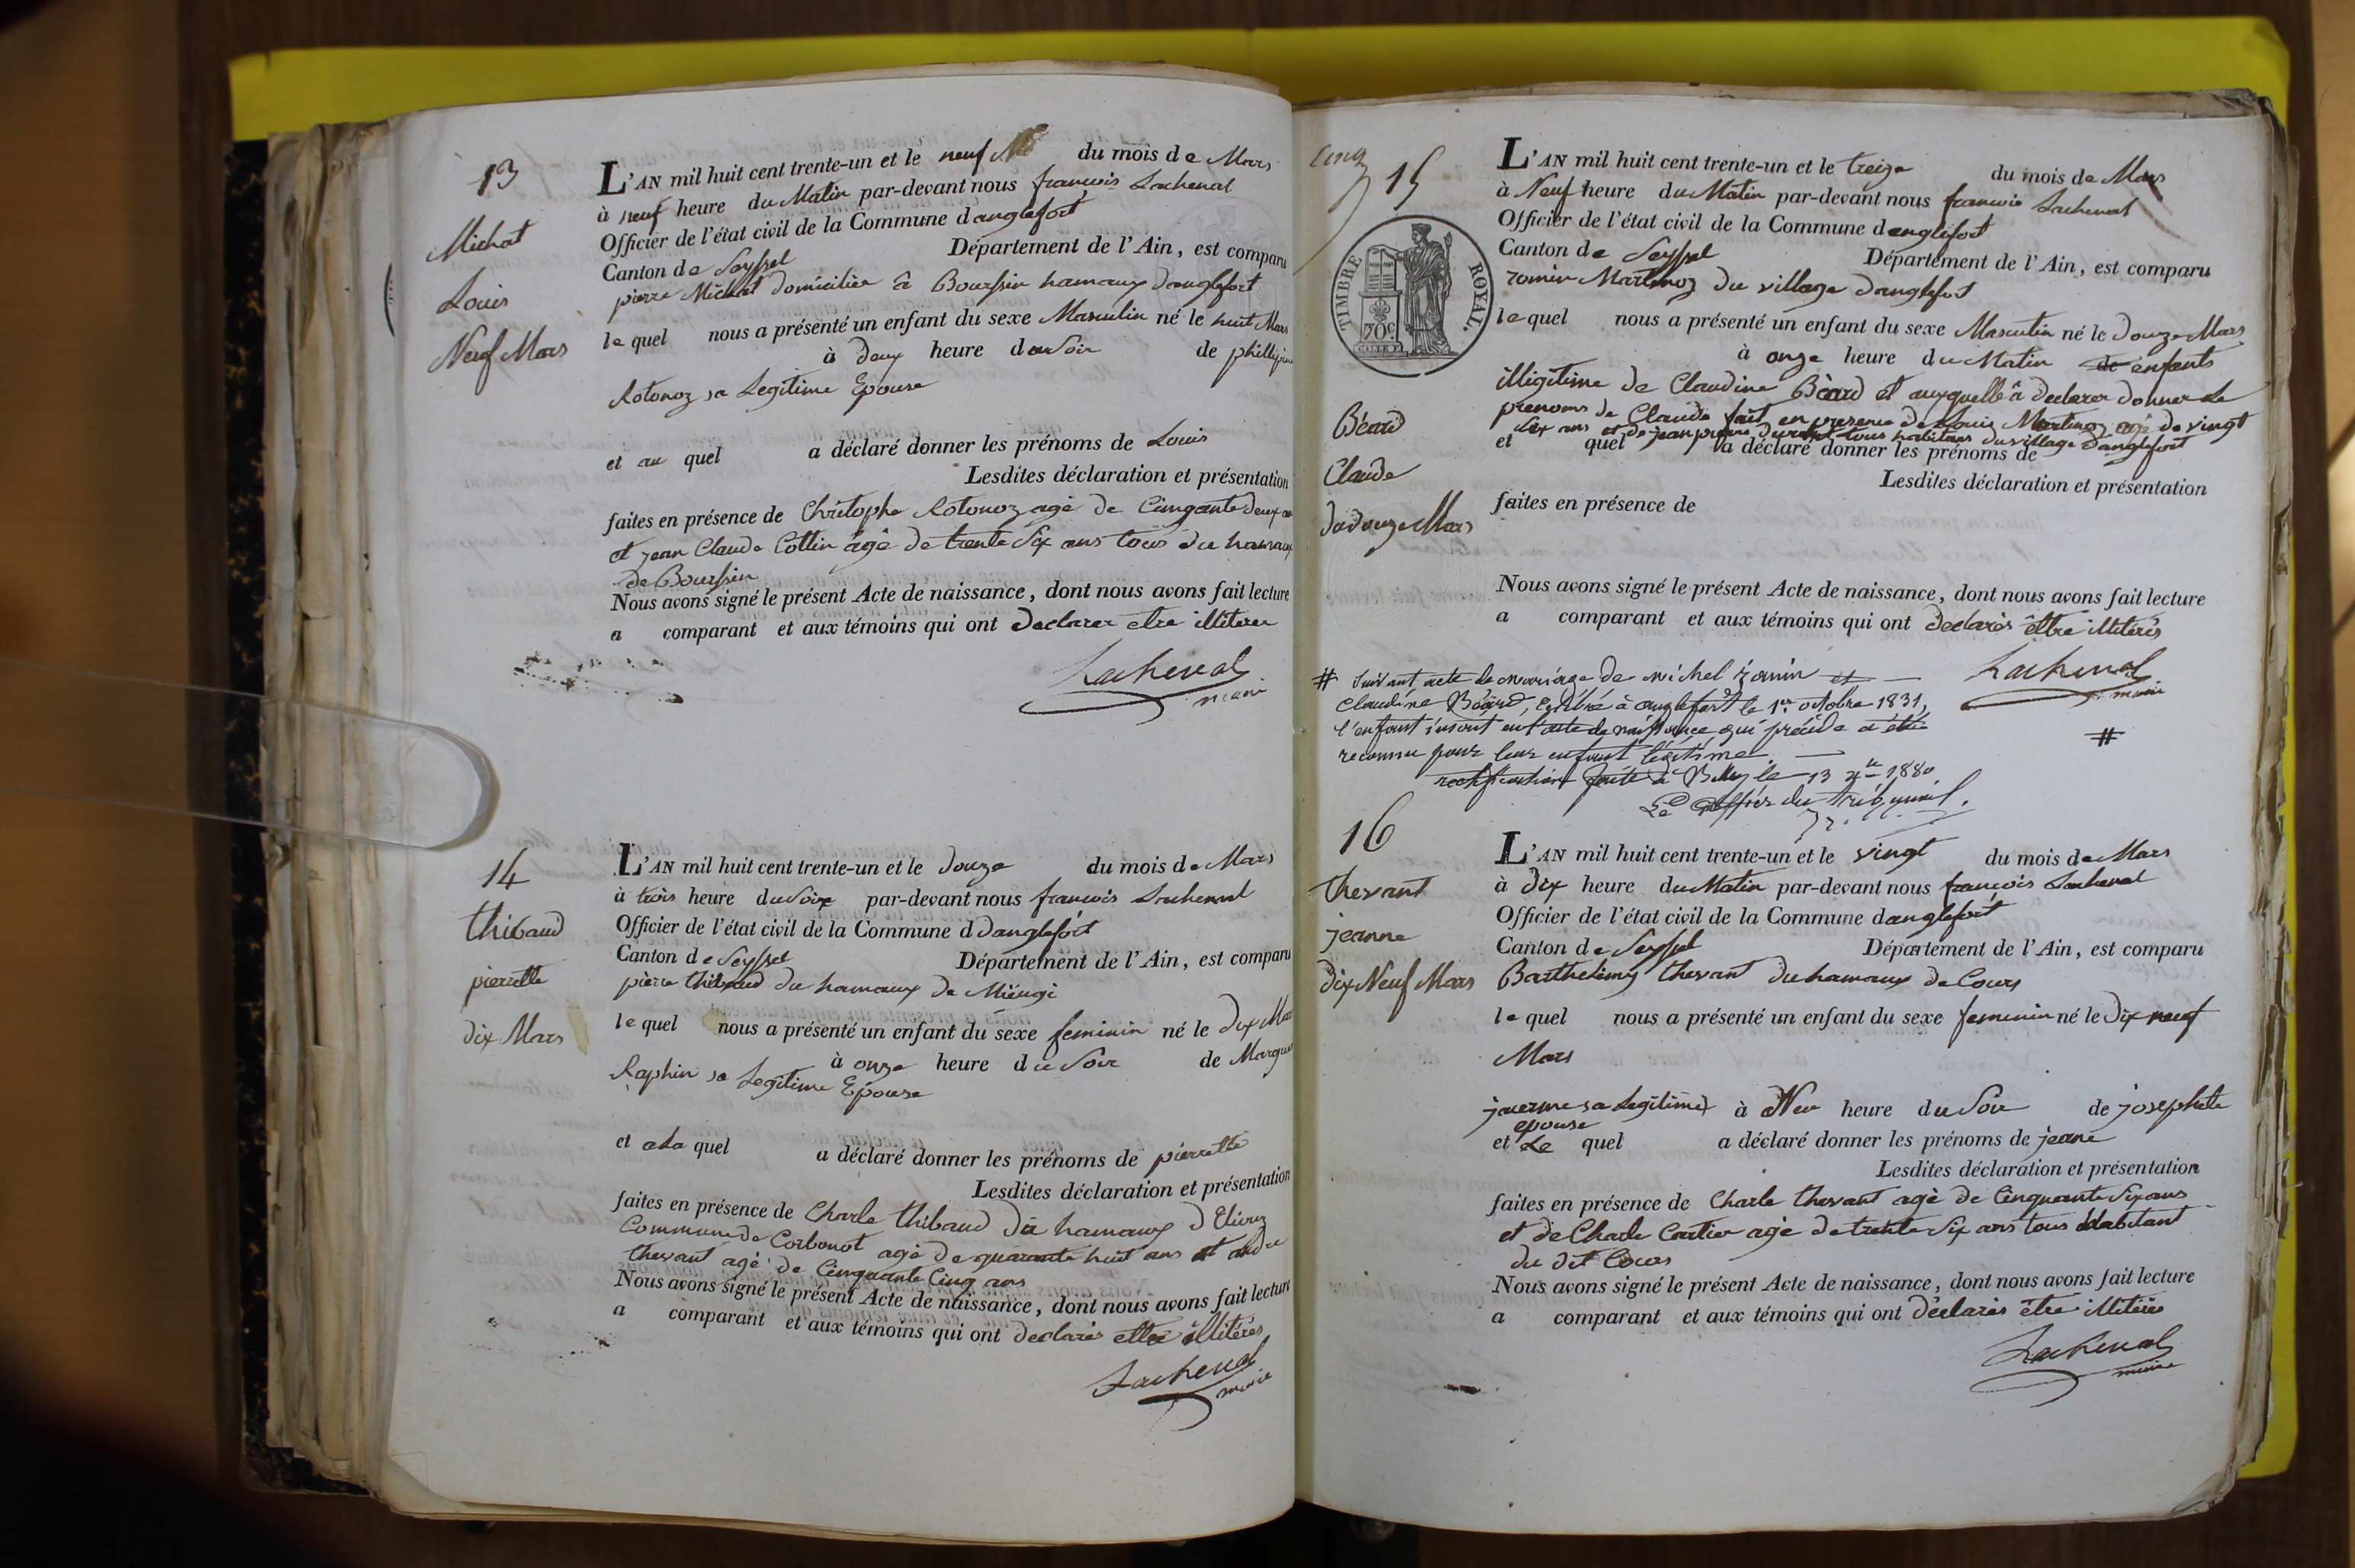 13
Michat
Louis
Neuf Mars
L'AN mil huit cent trente-un et le neuf du mois de Mars
à neuf heure du Matin par-devant nous francois Lachenal
Officier de l'état civil de la Commune danglefort
Canton de Seyssel Département de l'Ain, est comparu
pierre Michat domicilier â Bourssin hamaux danglefort
le quel nous a présenté un enfant du sexe Masculin né le huit Mars
à deux heure du Soir de phillipine
Rotonoz sa Legitime Epouse
et au quel a déclaré donner les prénoms de Louis
Lesdites déclaration et présentation
faites en présence de Christophe Rotonoz agé de Cinqante deux
et jean Claude Cottin âgé de trente Six ans tous du hamaux
de Bourssin
Nous avons signé le présent Acte de naissance, dont nous avons fait lecture
a comparant et aux témoins qui ont declarer etre
Lachenal
maire
14
thibaud
pierrette
dix Mars
L'AN mil huit cent trente-un et le douze du mois de Mars
à trois heure du Soir par-devant nous francois Lachenal
Officier de l'état civil de la Commune d danglefort
Canton de Seyssel Département de l'Ain, est comparu
pierre thibaud du hamaux de Mieugi
le quel nous a présenté un enfant du sexe feminin né le dix
à onze heure du Soir de
Raphin sa Legitime Epouse
et ala quel a déclaré donner les prénoms de pierrette
Lesdites déclaration et présentation
faites en présence de Charle thibaud du hamaux
Commune de Corbonot agé de quarante huit ans et
thevant agé de Cinquante Cinq ans
Nous avons signé le présent Acte de naissance, dont nous avons fait lecture
a comparant et aux témoins qui ont declarés etre illitérés
Lachenal
maire
Cinq
15
TIMBRE ROYAL.
70c.
Béard
Claude
du douze Mars
L'AN mil huit cent trente-un et le treize du mois de Mars
à Neuf heure du Matin par-devant nous francois Lachenal
Officier de l'état civil de la Commune danglefort
Canton de Seyssel Département de l'Ain, est comparu
du village danglefort
le quel nous a présenté un enfant du sexe Masculin né le douze Mars
à onze heure du Matin de enfents
illigitime de Claudine Béard et auxquelle â declarer donner Le
prenoms de Claude fait en presence de Louis Martinoz agé de vingt
Six ans et de jean pierre tous habitans du village danglefort
et quel a déclaré donner les prénoms de
Lesdites déclaration et présentation
faites en présence de
Nous avons signé le présent Acte de naissance, dont nous avons fait lecture
a comparant et aux témoins qui ont declarés être illitérés
Lachenal
maire
# Suivant acte de mariage de michel et
claudine Béard, célébré à anglefort le 1er octobre 1831,
l'enfant inscrit en l'acte de naissance qui précède a été
reconnu pour leur enfant légitime.
rectification faite à Belley le 13 1880.
Le Greffier du tribunal.
#
16
thevant
jeanne
dix Neuf Mars
L'AN mil huit cent trente-un et le vingt du mois de Mars
à dix heure du Matin par-devant nous françois Lachenal
Officier de l'état civil de la Commune danglefort
Canton de Seyssel Département de l'Ain, est comparu
Barthelemy thevant du hamaux de Cours
le quel nous a présenté un enfant du sexe feminin né le dix neuf
Mars
sa legitime à heure du Soir de josephete
epouse
et Le quel a déclaré donner les prénoms de jeane
Lesdites déclaration et présentation
faites en présence de Charle thevant agé de Cinquante Six ans
et de Charle Cartier agé de trente Six ans tous habitant
du dit Cours
Nous avons signé le présent Acte de naissance, dont nous avons fait lecture
a comparant et aux témoins qui ont declarés être illitérés
Lachenal
maire